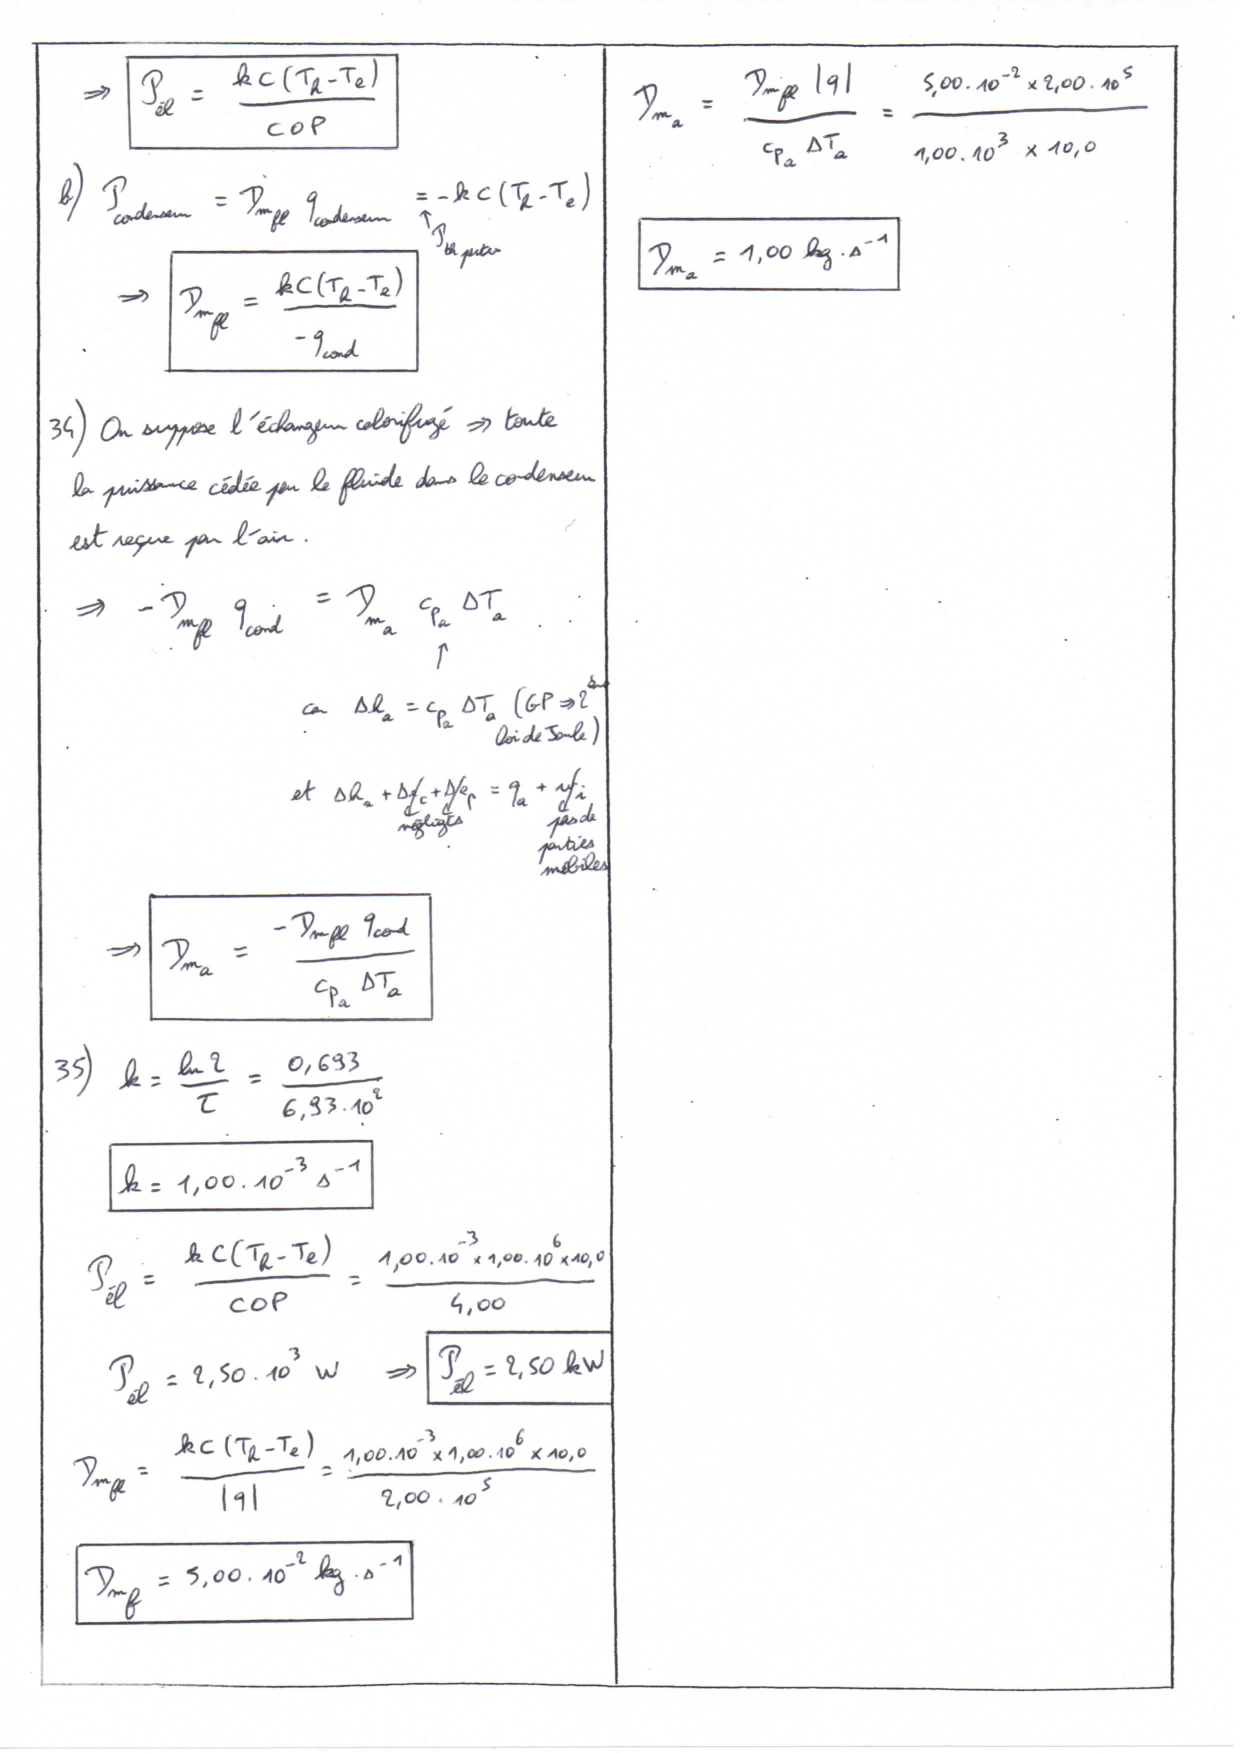 ⇒ P_él = kC(T_R - T_e) / COP
b) P_condenseur = D_mfl q_condenseur = -kC(T_R - T_e)
↑ P_th perte
⇒ D_mfl = kC(T_R - T_e) / -q_cond
34) On suppose l'échangeur calorifugé ⇒ toute
la puissance cédée par le fluide dans le condenseur
est reçue par l'air.
⇒ -D_mfl q_cond = D_ma c_pa ΔT_a
↑
car Δh_a = c_pa ΔT_a (GP ⇒ 2ème
loi de Joule)
et Δh_a + Δe_c + Δe_p = q_a + w_i
négligés
pas de
parties
mobiles
⇒ D_ma = -D_mfl q_cond / c_pa ΔT_a
35) k = ln 2 / τ = 0,693 / 6,93.10²
k = 1,00.10⁻³ s⁻¹
P_él = kC(T_R - T_e) / COP = 1,00.10⁻³ × 1,00.10⁶ × 10,0 / 4,00
P_él = 2,50.10³ W ⇒ P_él = 2,50 kW
D_mfl = kC(T_R - T_e) / |q| = 1,00.10⁻³ × 1,00.10⁶ × 10,0 / 2,00.10⁵
D_mfl = 5,00.10⁻² kg.s⁻¹
D_ma = D_mfl |q| / c_pa ΔT_a = 5,00.10⁻² × 2,00.10⁵ / 1,00.10³ × 10,0
D_ma = 1,00 kg.s⁻¹